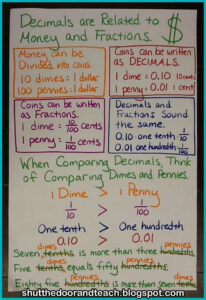 Decimals are Related to
Money and Fractions. $
Money can be
Divided into coins.
10 dimes = 1 dollar
100 pennies = 1 dollar
Coins can be written
as DECIMALS.
1 dime = 0.10 10 cents
1 penny = 0.01 1 cent
Coins can be written
as Fractions.
1 dime = 10/100 cents
1 penny = 1/100 cents
Decimals and
Fractions Sound
the same.
0.10 one tenth 1/10
0.01 one hundredth 1/100
When Comparing Decimals, Think of
Comparing Dimes and Pennies.
1 Dime > 1 Penny
1/10 > 1/100
One tenth > One hundredth
0.10 > 0.01
dimes pennies
Seven tenths is more than three hundredths.
dimes pennies
Five tenths equals fifty hundredths.
pennies dimes
Eighty five hundredths is more than seven tenths
shutthedoorandteach.blogspot.com